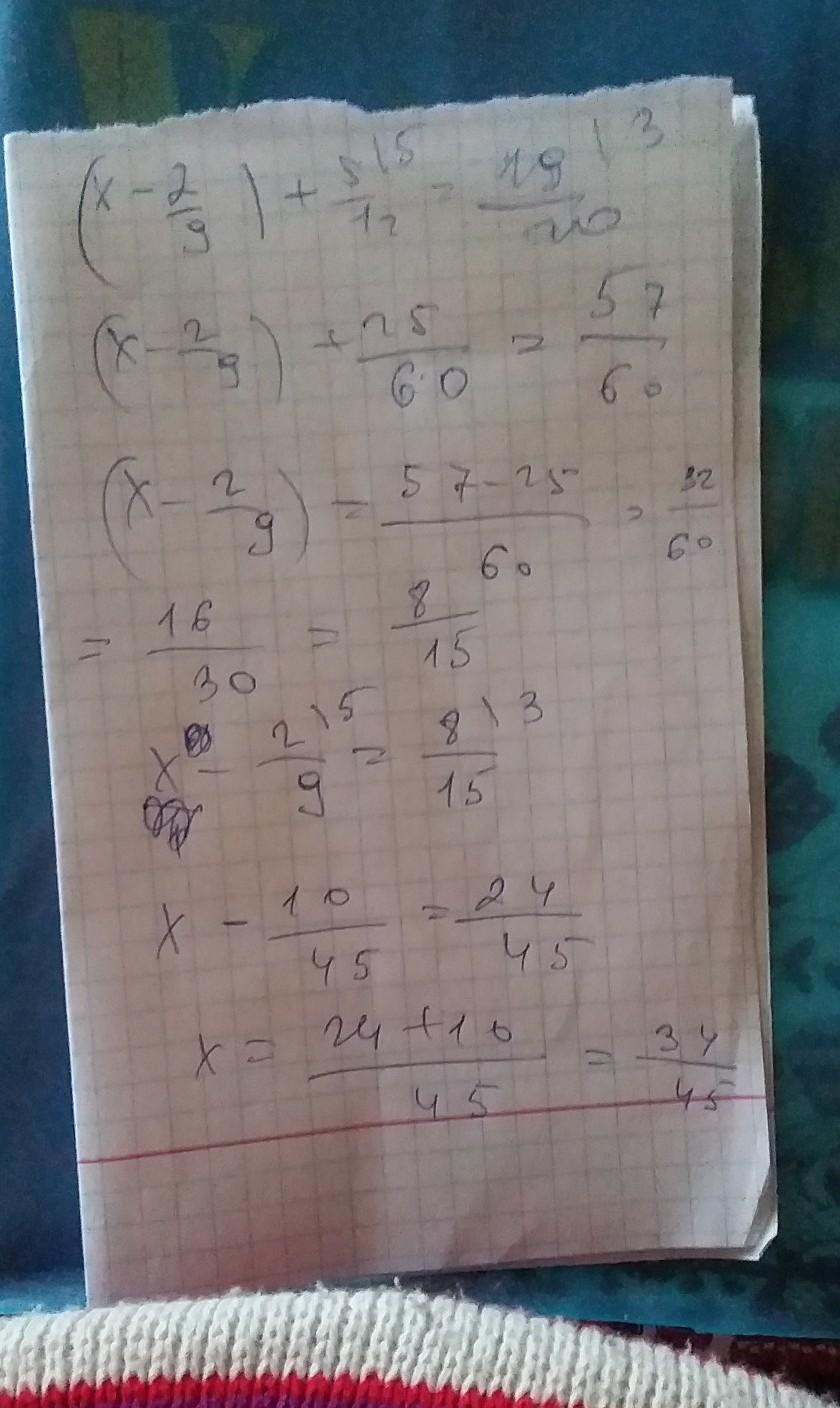 (x - 2/9) + 5/12 \5 = 19/20 \3
(x - 2/9) + 25/60 = 57/60
(x - 2/9) = 57-25/60 = 32/60
= 16/30 = 8/15
x - 2/9 \5 = 8/15 \3
x - 10/45 = 24/45
x = 24+10/45 = 34/45